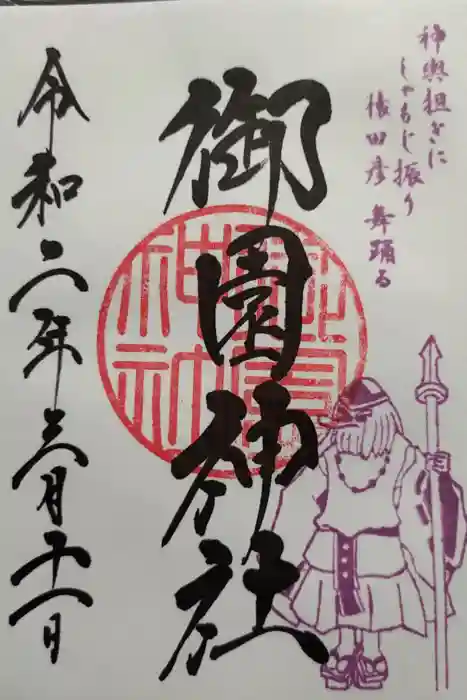 神輿担ぎに
しゃもじ振り
猿田彦 舞踊る
御園神社
令和二年三月十一日